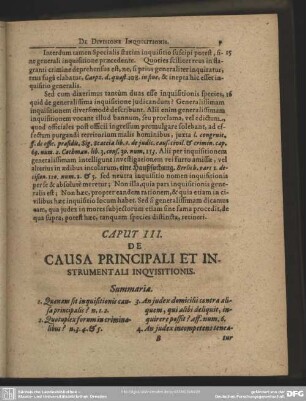 DE DIVISIONE INQUISITIONIS. 9
Interdum tamen Specialis statim inquisitio suscipi potest, si- 15
ne generali inquisitione præcedente. Quoties scilicet reus in fla-
granti crimine deprehensus est, ne, si prius generaliter inquiratur,
reus fugâ elabatur. Carpz. d. quæst. in fine, & inepta hîc esset in-
quisitio generalis.
Sed cum dixerimus tantùm duas esse Inquisitionis species, 16
quid de generalissima inquisitione judicandum? Generalissimam
inquisitionem diversimodè describunt. Alii enim generalissimam
inquisitionem vocant illud bannum, seu proclama, vel edictum,
quod officiales post officii ingressum promulgare solebant, ad ef-
fectum purgandi territorium malis hominibus, juxta l. congruit,
ff. de offic. præsid. Sig. Scaccia lib. 1. de judic. caus. civil. & crimin. cap.
69. num. 2. Cothman. lib. 3. cons. 30. num. 115. Alii per inquisitionem
generalissimam intelligunt investigationem rei furto amissæ, vel
alterius in ædibus intolarum, eine Haußsuchung. Berlich. part. 2. de-
cision. num. 2. & 5. Sed neutra inquisitio nomen inquisitionis
per se & absolutè meretur; Non illa, quia pars inquisitionis gene-
ralis est; Non hæc, propter eandem rationem, & quia etiam in ci-
vilibus hæc inquisitio locum habet. Sed si generalissimam dicamus
eam, quâ judex in mores subjectorum etiam sine fama procedit, de
qua supra, potest hæc, tanquam species distincta, retineri.
CAPUT III.
DE
CAUSA PRINCIPALI ET IN-
STRUMENTALI INQVISITIONIS.
Summaria.
1. Quænam sit inquisitionis cau-
sa principalis? n. 1. 2.
2. Quotuplex forum in crimina-
libus? n. 3. 4. & 5.
3. An judex domicilii contra ali-
quem, qui alibi deliquit, in-
quirere possit? aff. num. 6.
4. An judex incompetens tenea-
B tur